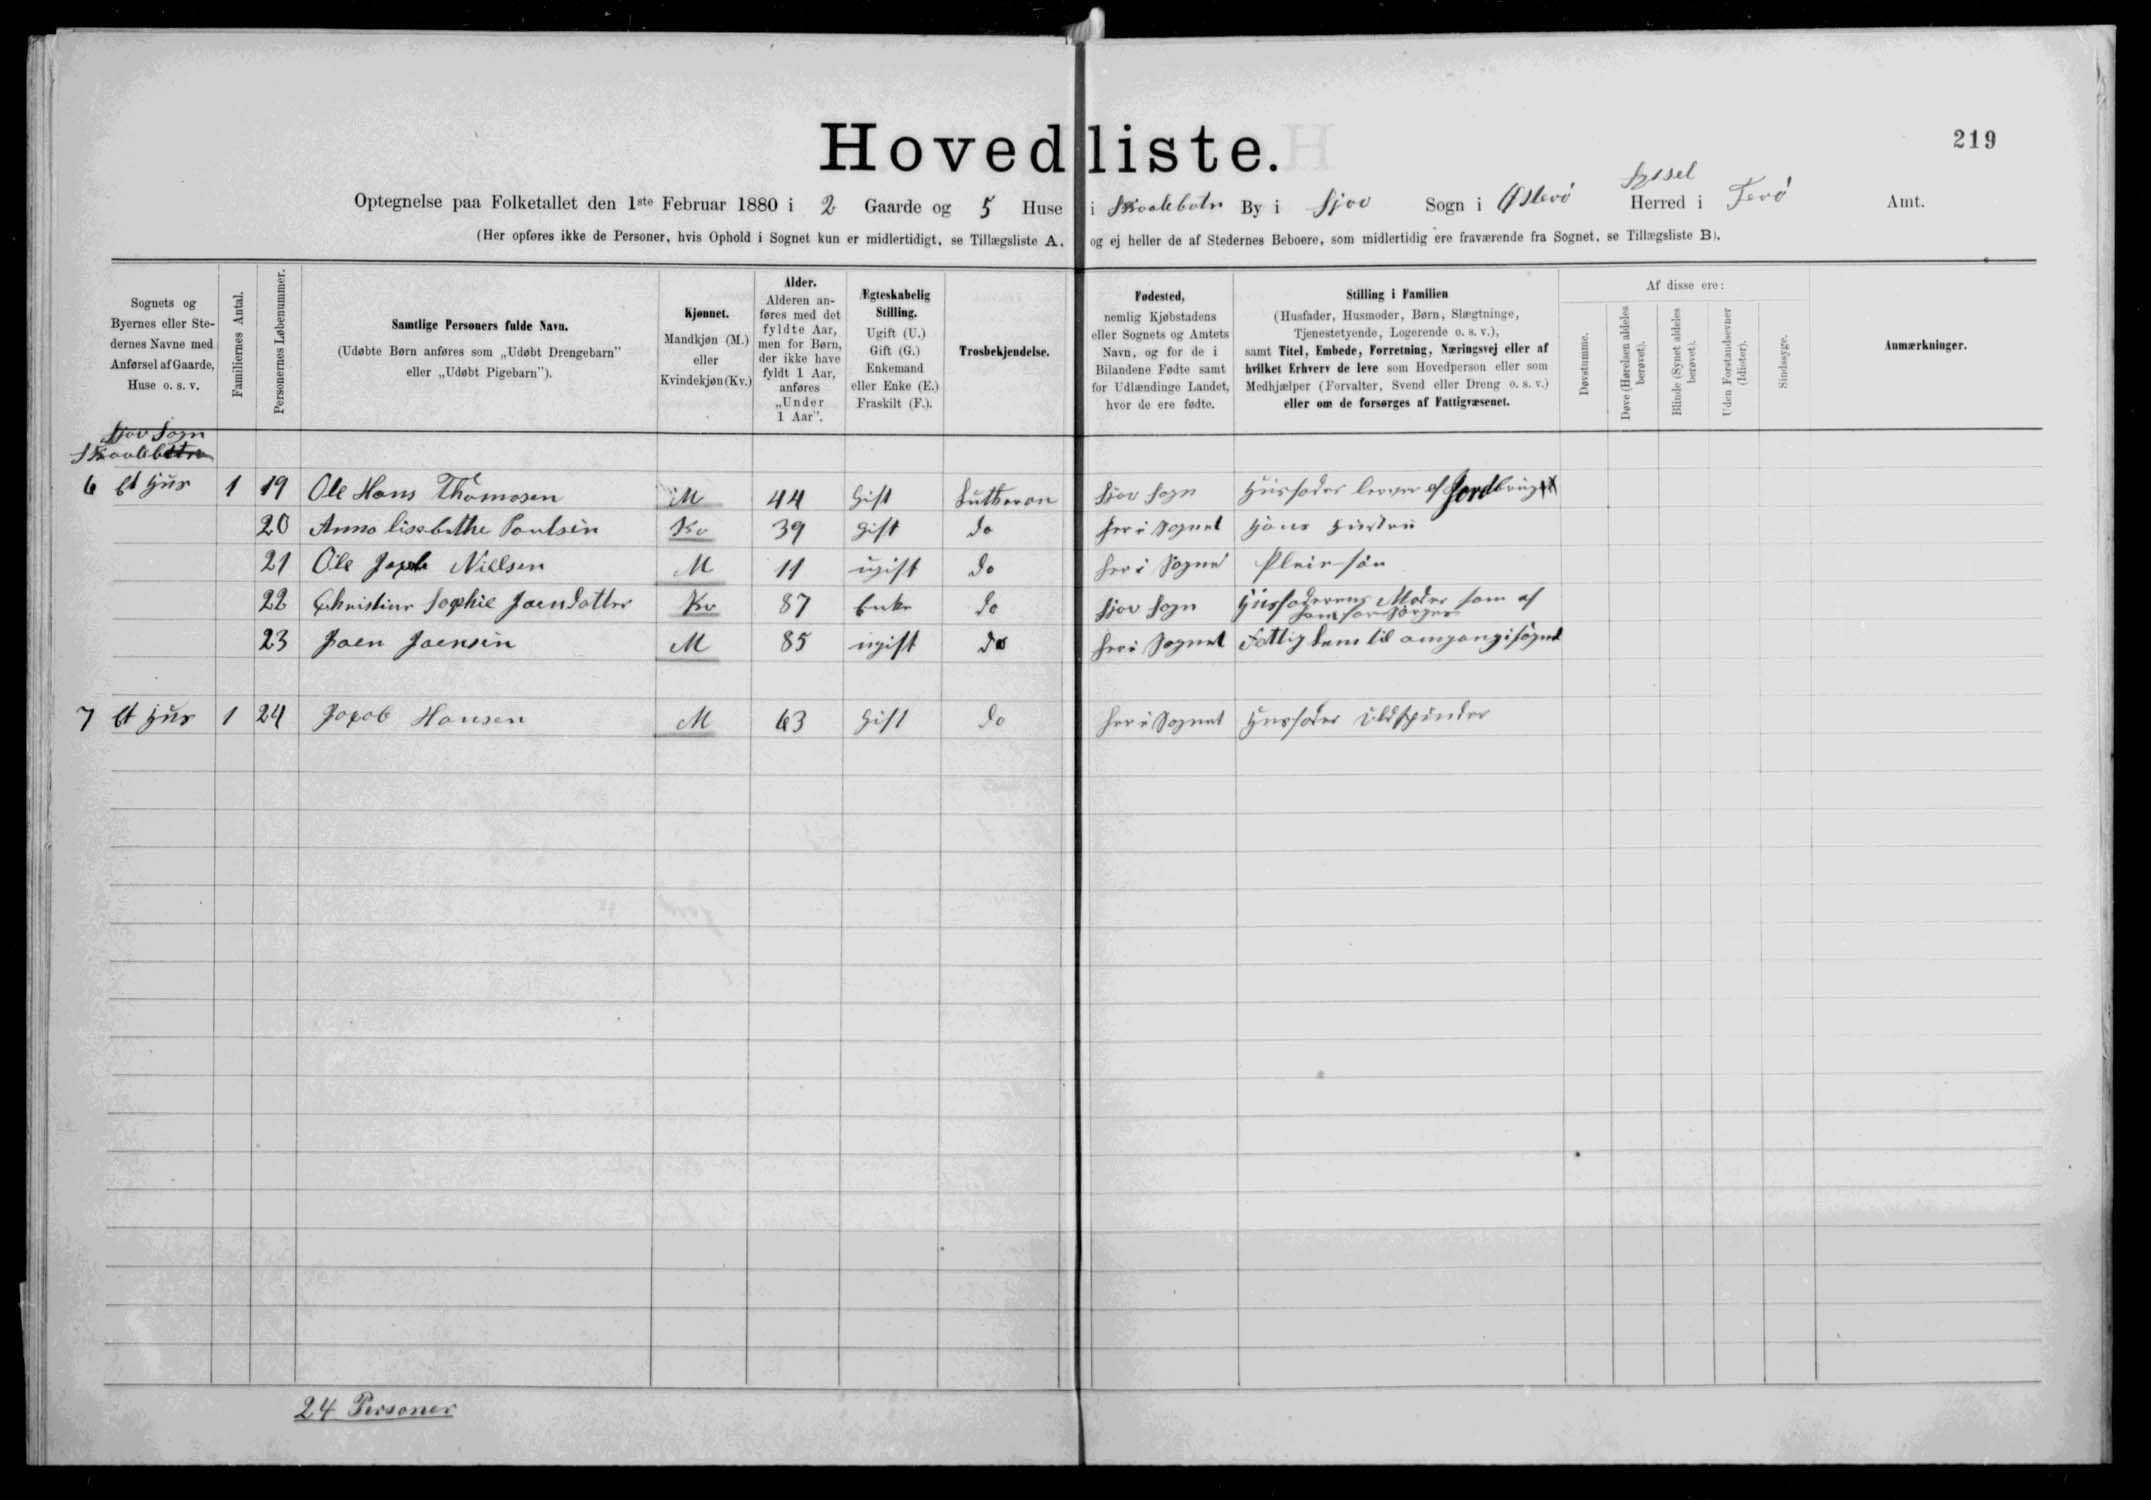 Hovedliste.
219
Optegnelse paa Folketallet den 1ste Februar 1880 i 2 Gaarde og 5 Huse i Skaalebotn By i Sjov Sogn i Østerø Syssel Herred i Ferø Amt.
(Her opføres ikke de Personer, hvis Ophold i Sognet kun er midlertidigt, se Tillægsliste A, og ej heller de af Stedernes Beboere, som midlertidig ere fraværende fra Sognet, se Tillægsliste B).
Sognets og Byernes eller Stedernes Navne med Anførsel af Gaarde, Huse o. s. v.
Familiernes Antal.
Personernes Løbenummer.
Samtlige Personers fulde Navn.
(Udøbte Børn anføres som „Udøbt Drengebarn”
eller „Udøbt Pigebarn”).
Kjønnet.
Mandkjøn (M.)
eller
Kvindekjøn (Kv.)
Alder.
Alderen anføres med det fyldte Aar, men for Børn, der ikke have fyldt 1 Aar, anføres „Under 1 Aar”.
Ægteskabelig Stilling.
Ugift (U.)
Gift (G.)
Enkemand eller Enke (E.)
Fraskilt (F.).
Trosbekjendelse.
Fødested,
nemlig Kjøbstadens eller Sognets og Amtets Navn, og for de i Bilandene Fødte samt for Udlændinge Landet, hvor de ere fødte.
Stilling i Familien
(Husfader, Husmoder, Børn, Slægtninge, Tjenestetyende, Logerende o. s. v.),
samt Titel, Embede, Forretning, Næringsvej eller af hvilket Erhverv de leve som Hovedperson eller som Medhjælper (Forvalter, Svend eller Dreng o. s. v.)
eller om de forsørges af Fattigvæsenet.
Af disse ere:
Døvstumme.
Døve (Hørelsen aldeles berøvet).
Blinde (Synet aldeles berøvet).
Uden Forstandsevner (Idioter).
Sindssyge.
Anmærkninger.
Sjov Sogn
Skaalebotn
6 Et Hus 1 19 Ole Hans Thomasen M 44 Gift Lutheran Sjov Sogn Husfader lever af Jordbruget
20 Anna Lisabethe Poulsen Kv 39 gift do her i Sognet Hans Hustru
21 Ole Jacob Nielsen M 11 ugift do her i Sogne Pleiesøn
22 Christine Sophie Joensdatter Kv 87 Enke do Sjov Sogn Husfaderens Moder som af ham forsørges
23 Joen Joensen M 85 ugift do her i Sognet Fattiglem til omgang i sognet
7 Et Hus 1 24 Jacob Hansen M 63 Gift do her i Sognet Husfader Uldspinder
24 Personer